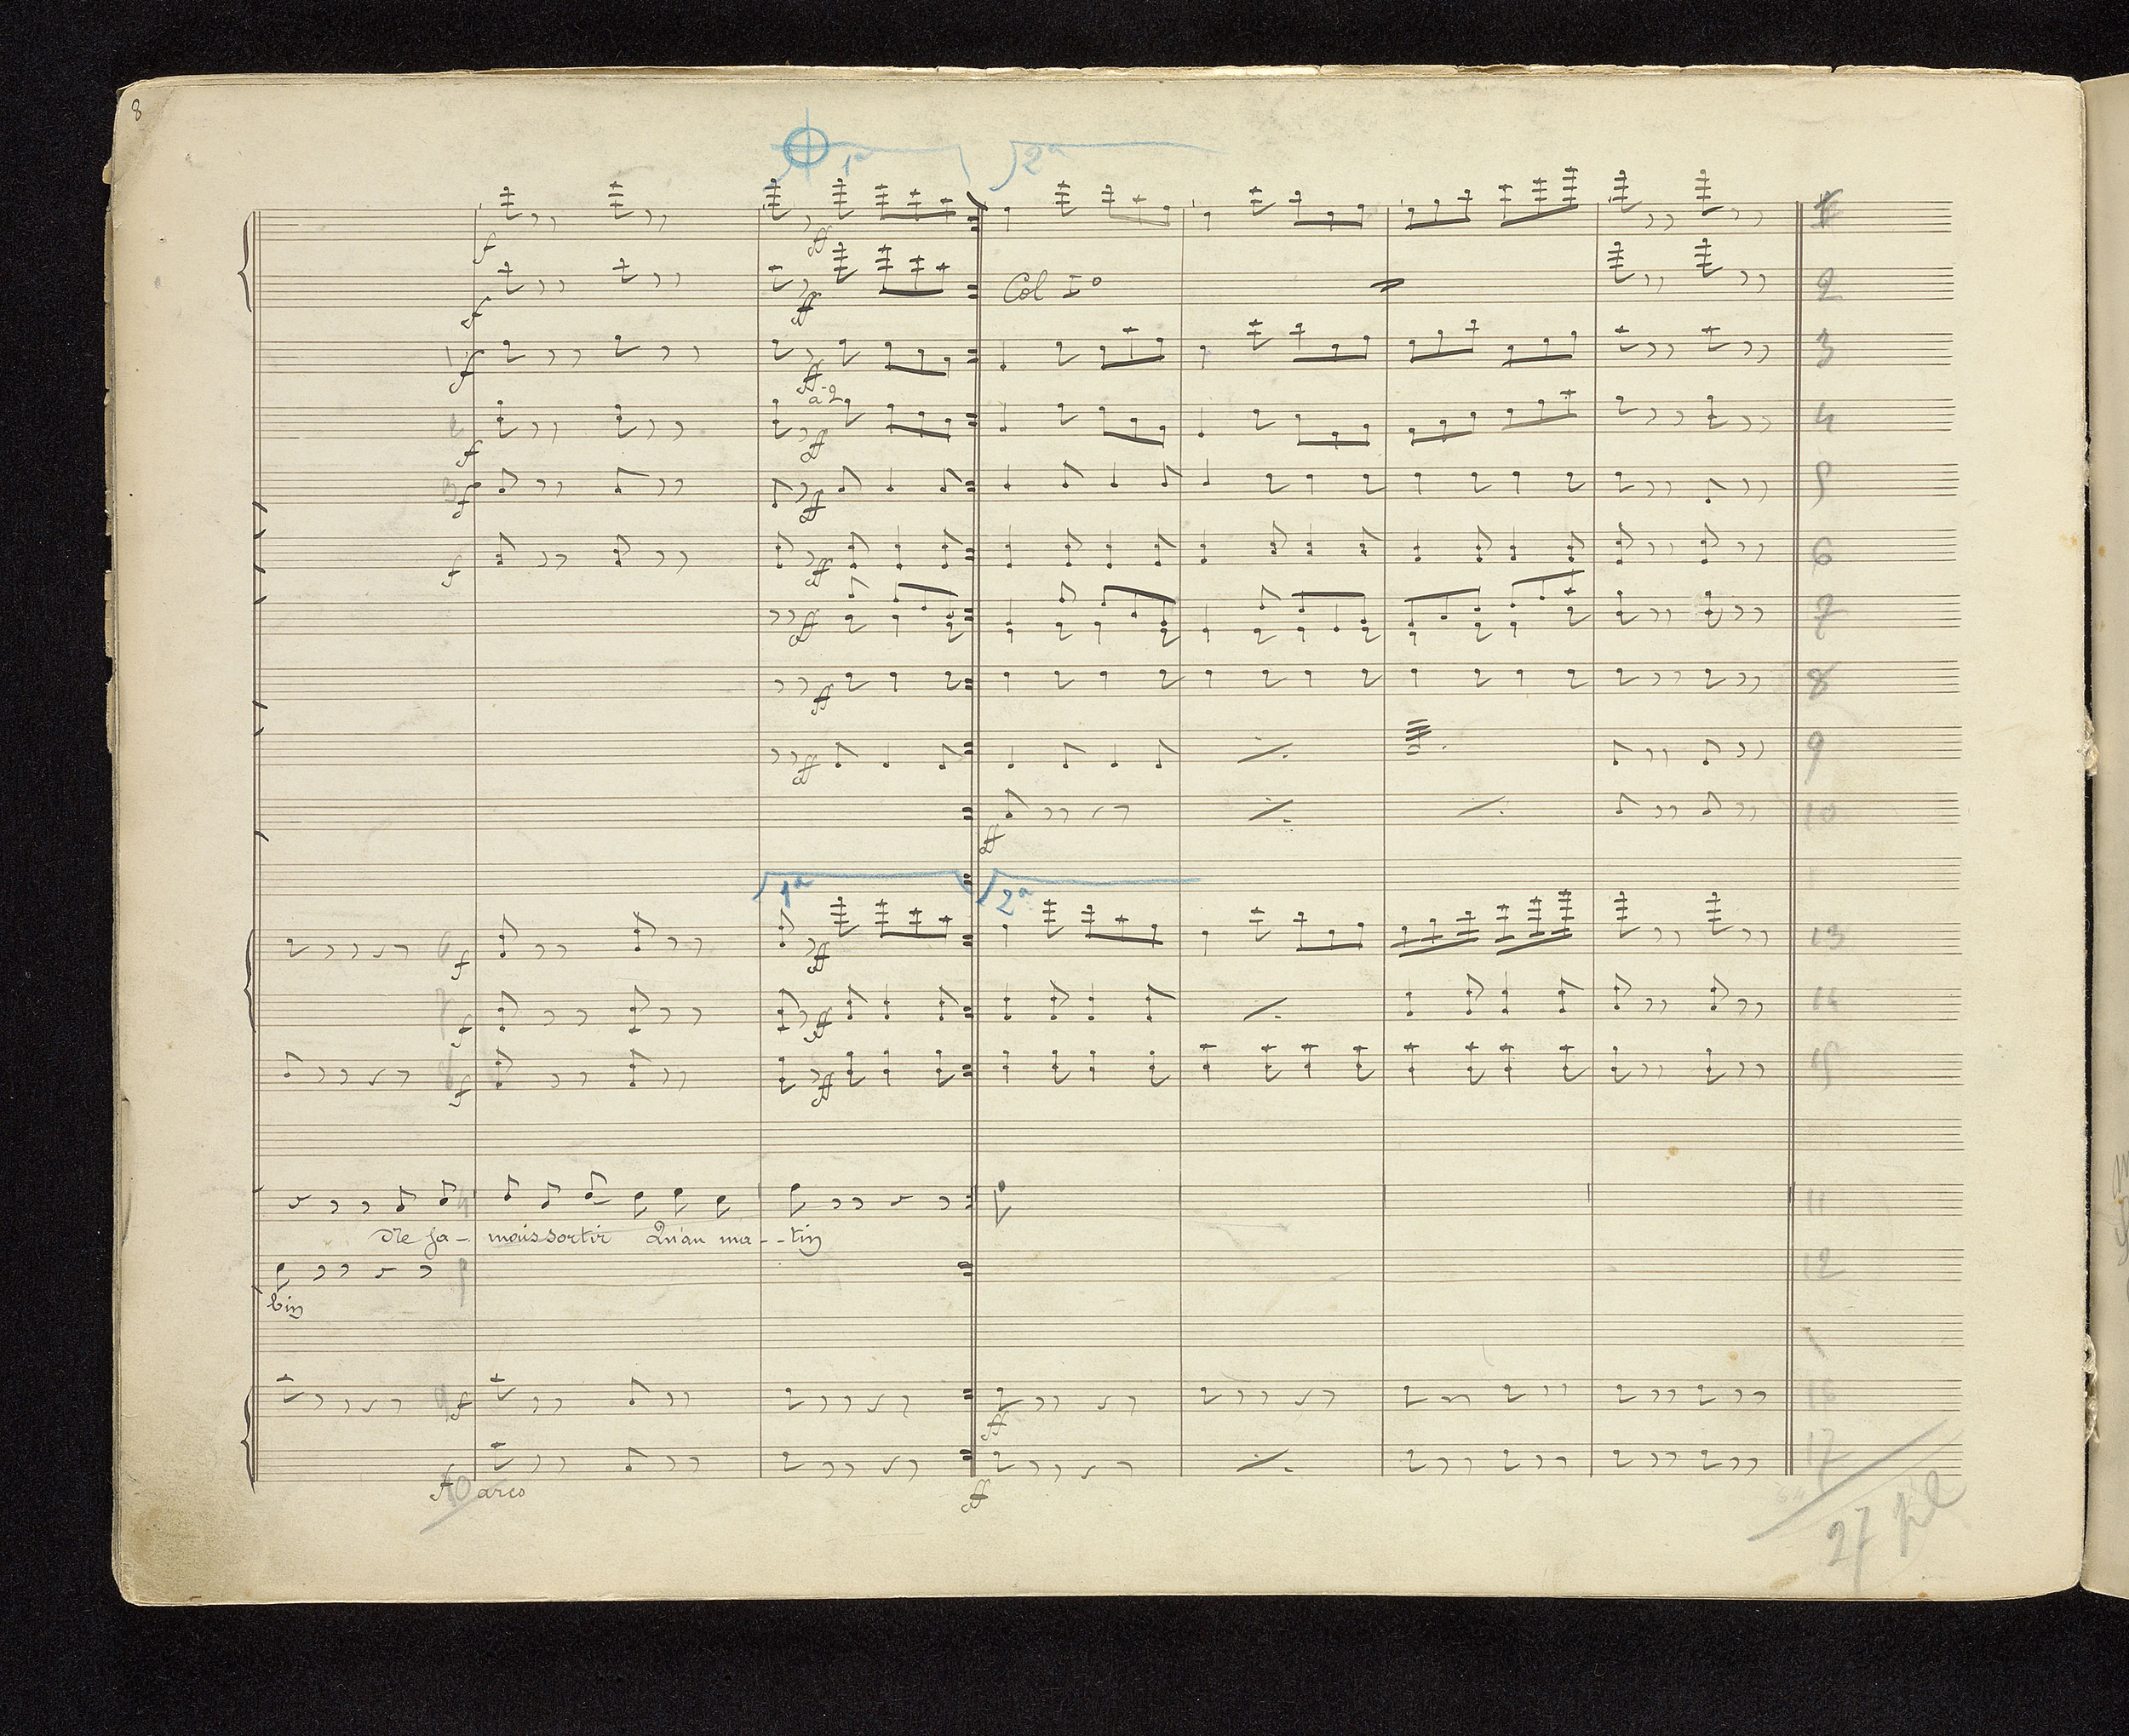 8
1a 2a
f
ff
1
2
f
ff
Col Iº
2
f
ff
3
a 2
f
ff
4
f
ff
5
f
ff
6
ff
7
ff
8
ff
9
ff
10
1a 2a
f
ff
13
f
ff
14
f
ff
15
11
Ne ja- mais sortir Qu'au ma--tin
12
bin
f
ff
16
f
10
arco
ff
17
27 pl